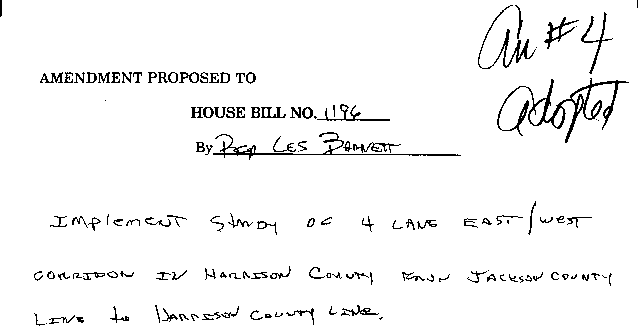 Am #4
Adopted
AMENDMENT PROPOSED TO
HOUSE BILL NO. 1196
By Rep LES BARNETT
IMPLEMENT STUDY OF 4 LANE EAST/WEST
CORRIDOR IN HARRISON COUNTY FROM JACKSON COUNTY
LINE to HARRISON COUNTY LINE.